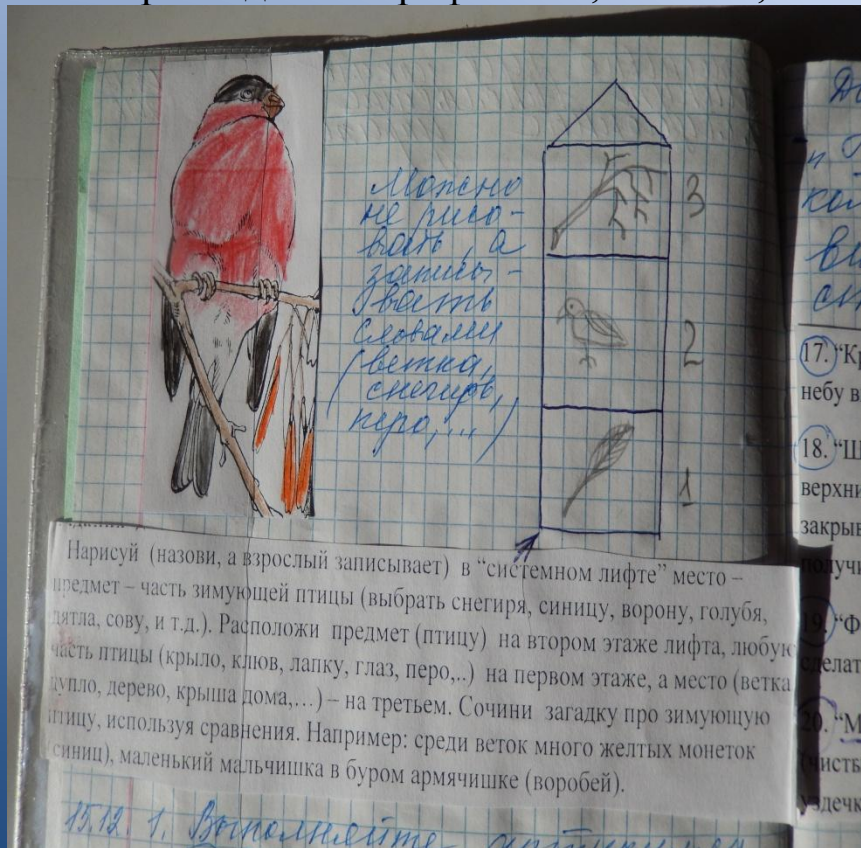 Можно
не рисо-
вать, а
записы-
вать
словами
(ветка,
снегирь,
перо,...)
3
2
1
Нарисуй (назови, а взрослый записывает) в “системном лифте” место –
предмет – часть зимующей птицы (выбрать снегиря, синицу, ворону, голубя,
дятла, сову, и т.д.). Расположи предмет (птицу) на втором этаже лифта, любую
часть птицы (крыло, клюв, лапку, глаз, перо,..) на первом этаже, а место (ветка
дупло, дерево, крыша дома,…) – на третьем. Сочини загадку про зимующую
птицу, используя сравнения. Например: среди веток много желтых монеток
(синиц), маленький мальчишка в буром армячишке (воробей).
15.12. 1. Выполняйте
17. “Кр
небу в
18. “Ш
верхни
закрыв
получи
19. “Ф
сделат
20. “М
(чисть
уздечк